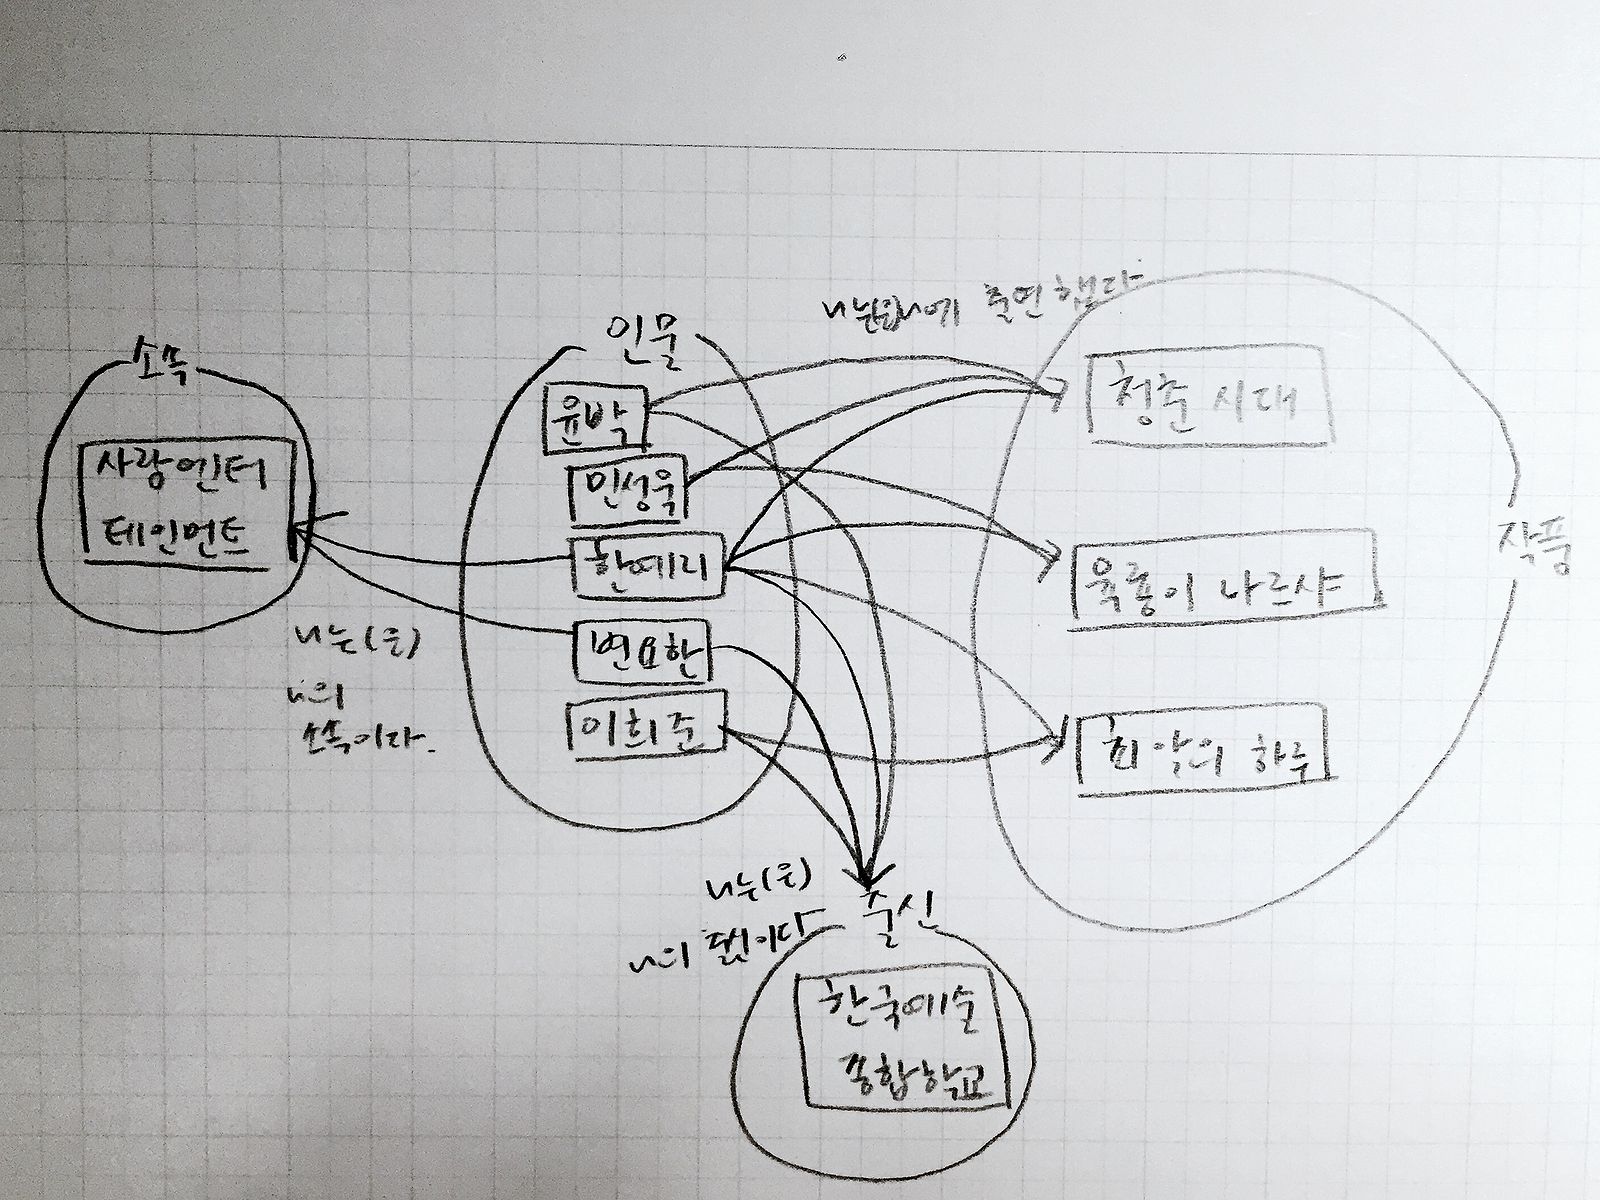 소속
사람엔터
테인먼트
~는(은)
~의
소속이다.
인물
윤박
민성욱
한예리
변요한
이희준
~는(은)~에 출연했다
청춘시대
육룡이 나르샤
최악의 하루
작품
~는(은)
~의 출신이다
출신
한국예술
종합학교